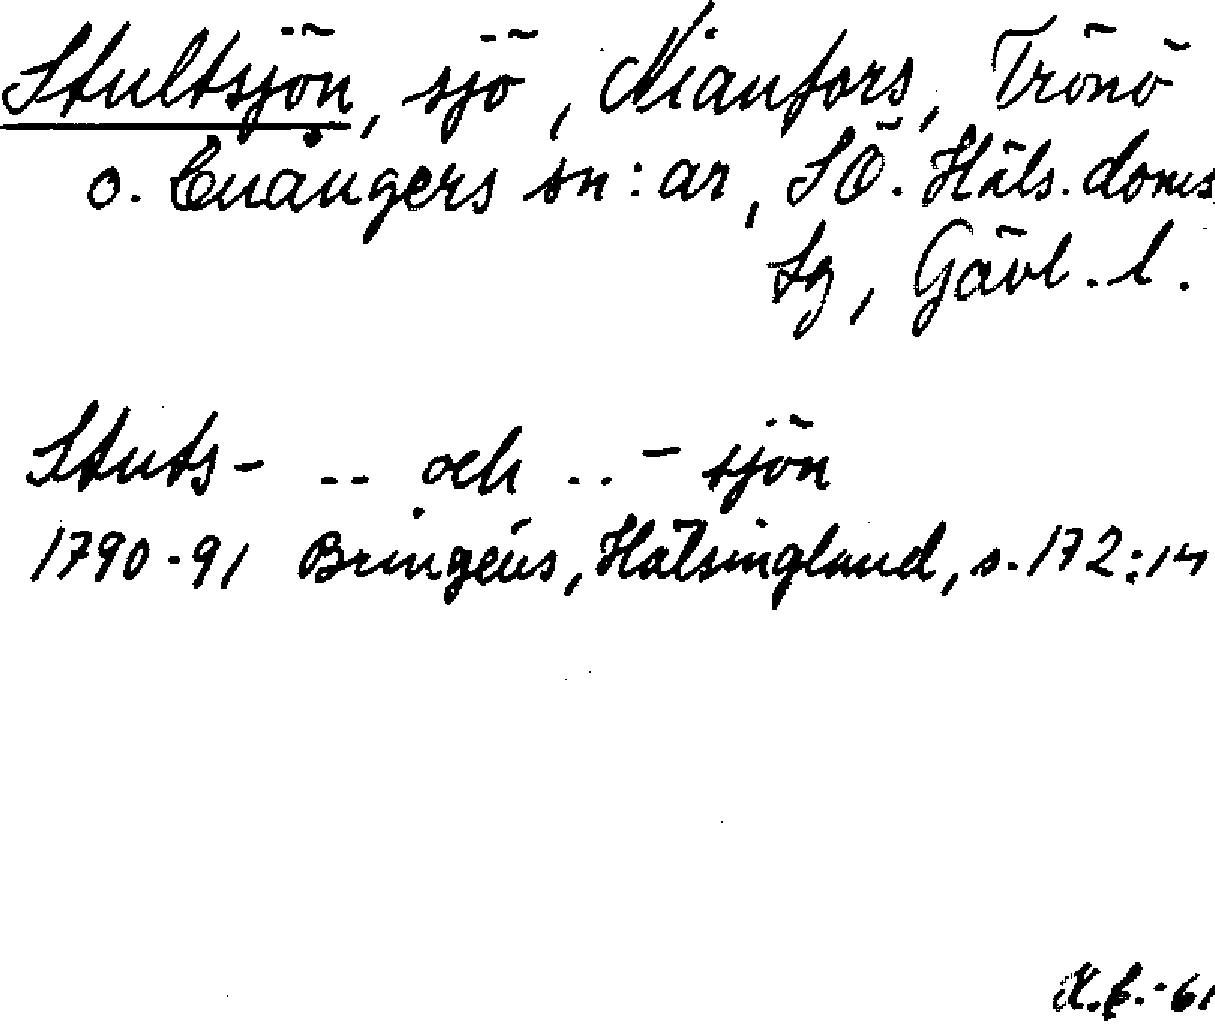 Stultsjön, sjö, Nianfors, Trönö
o. Enångers sn:ar, SÖ. Häls. doms
sg, Gävl. l.
Stuts- -- och ..- sjön
1790-91 Bringéus, Hälsingland, s. 172:14
-61